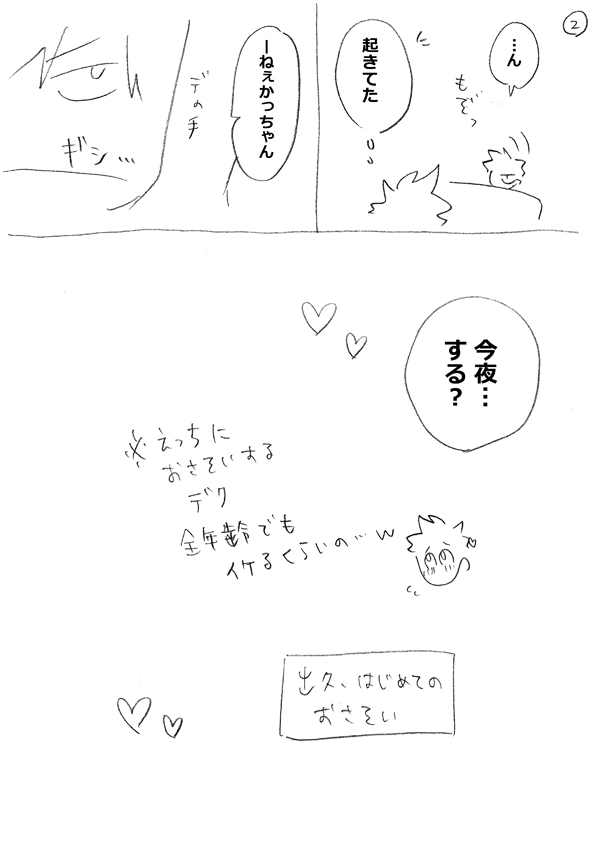 ②
…ん
もぞっ
起きてた
ーねぇかっちゃん
デの手
ギシ…
今夜…
する？
※えっちに
おさそいする
デク
全年齢でも
イケるくらいの…w
出久、はじめての
おさそい